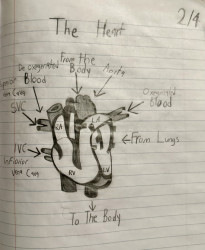 2/4
The Heart
From the
Body
Aorta
Deoxygenated
Blood
Oxygenated
Blood
SVC
RA
LA
From Lungs
IVC
Inferior
Vena Cava
RV
LV
To The Body